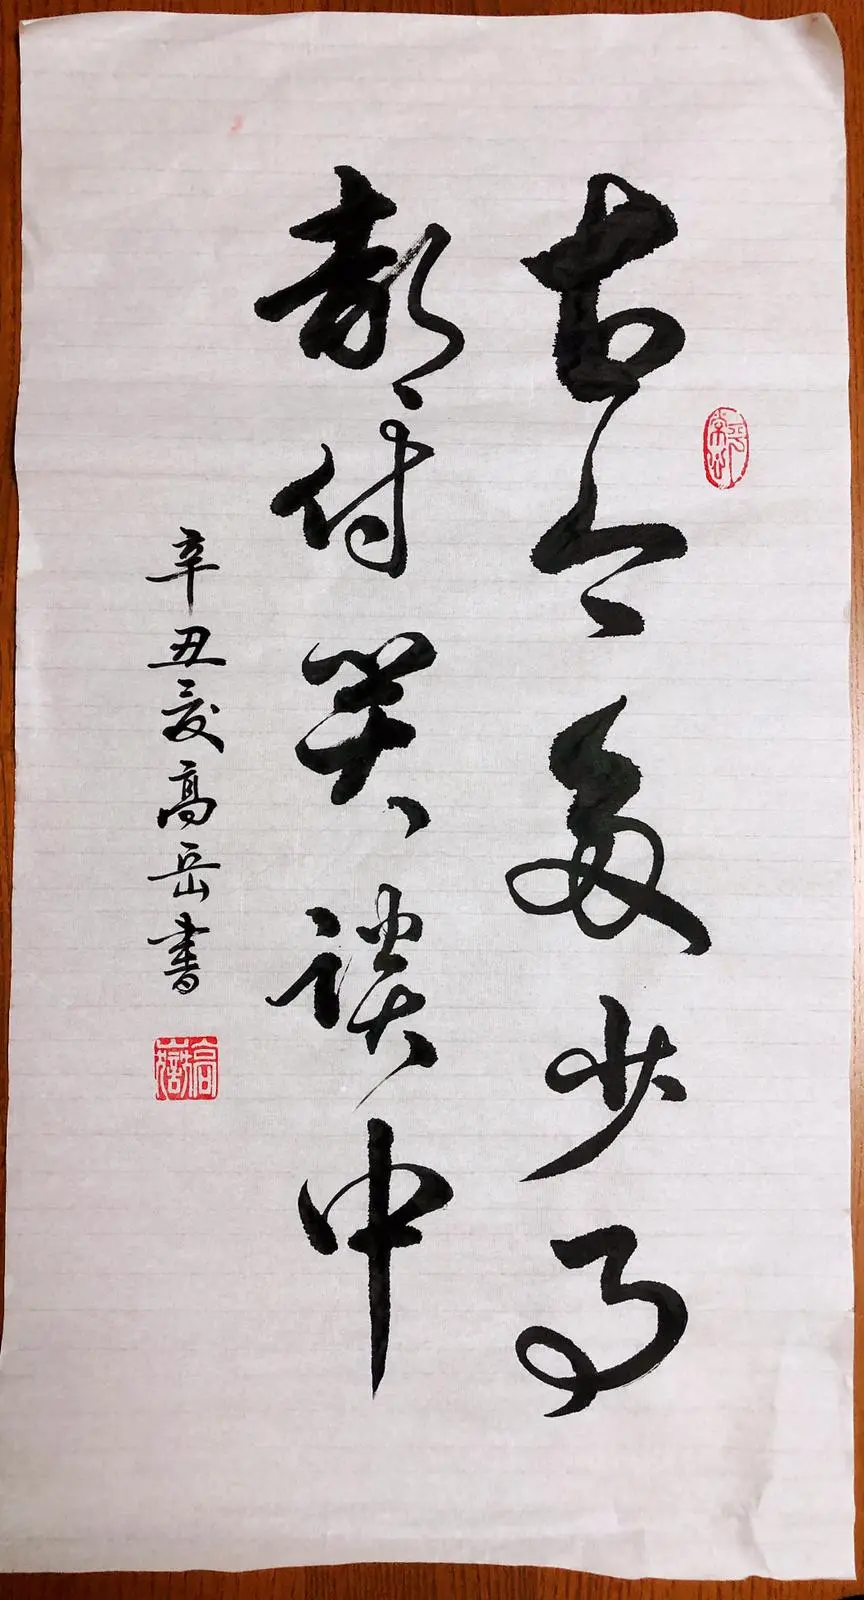 古今多少事
都付笑谈中
辛丑夏高岳書